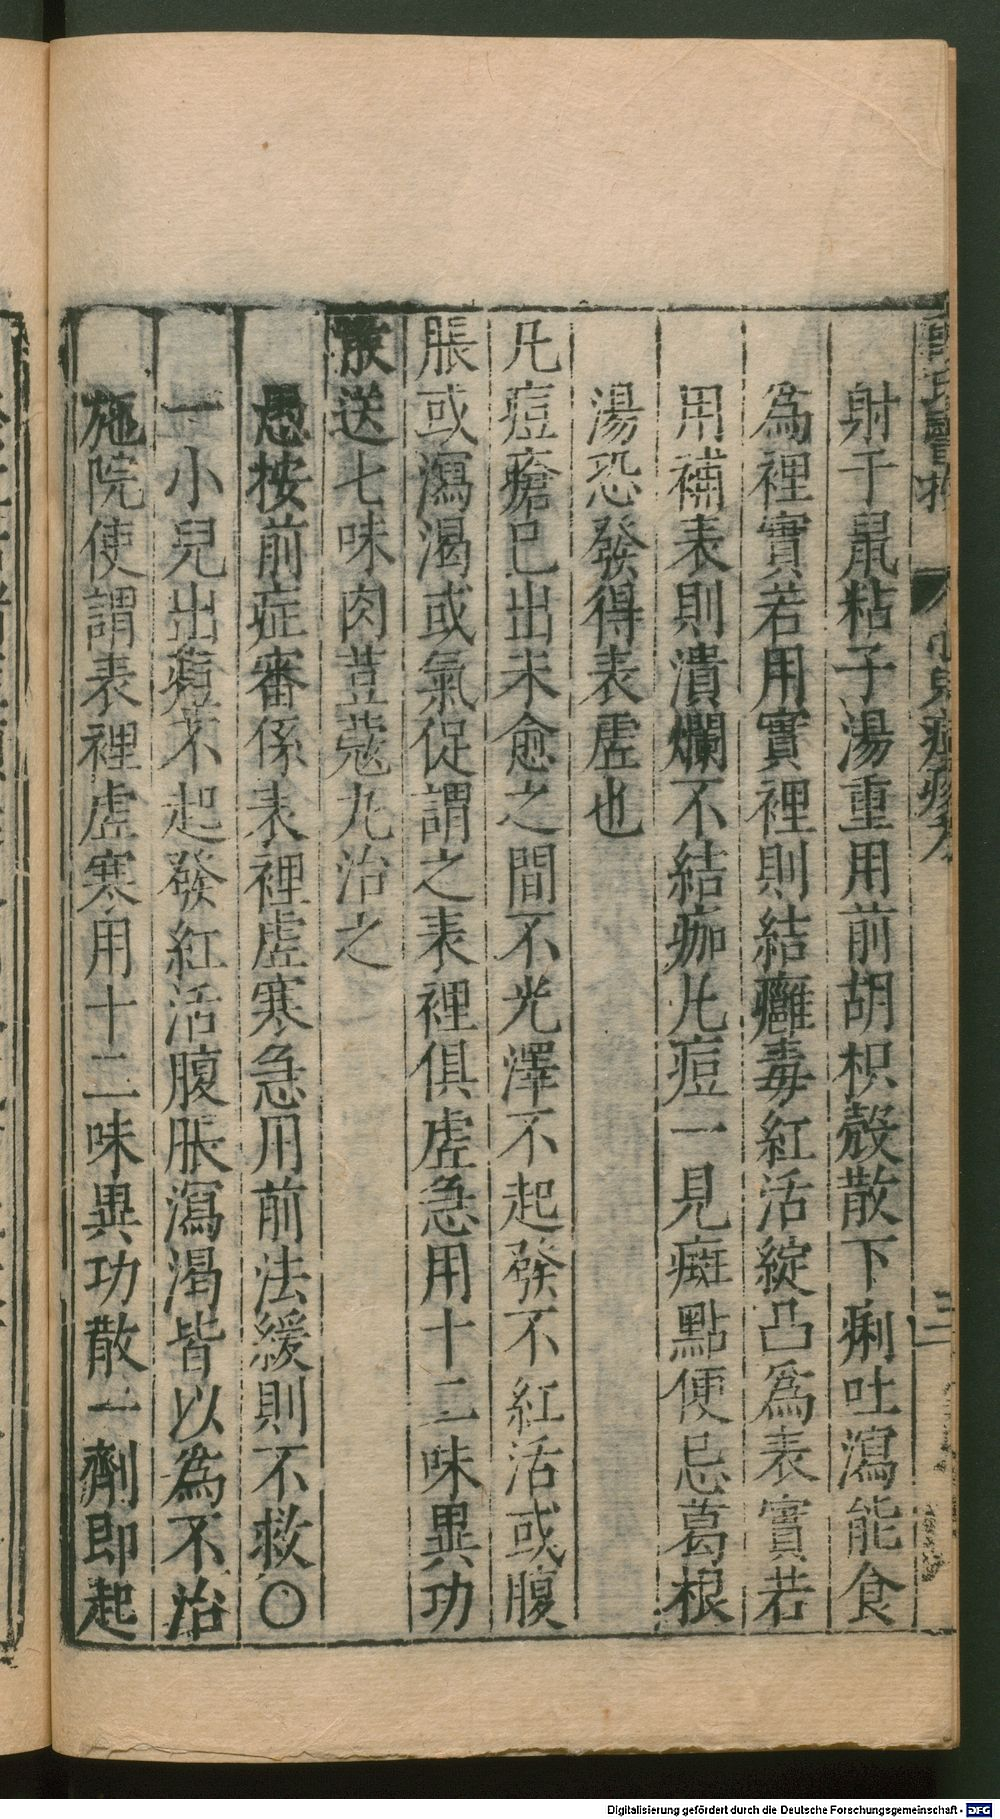 射子鼠粘子湯重用前胡枳殼散下痢吐瀉能食
為裡實若用實裡則結癰毒紅活綻凸為表實若
用補表則潰爛不結痂凡痘一見斑點便忌葛根
湯恐發得表虛也
凡痘瘡已出未愈之間不光澤不起發不紅活或腹
脹或瀉渴或氣促謂之表裡俱虛急用十二味異功
散送七味肉荳蔻丸治之
愚按前症審係表裡虛寒急用前法緩則不救〇
一小兒出痘不起發紅活腹脹瀉渴皆以為不治
施院使謂表裡虛寒用十二味異功散一劑即起
Digitalisierung gefördert durch die Deutsche Forschungsgemeinschaft - DFG